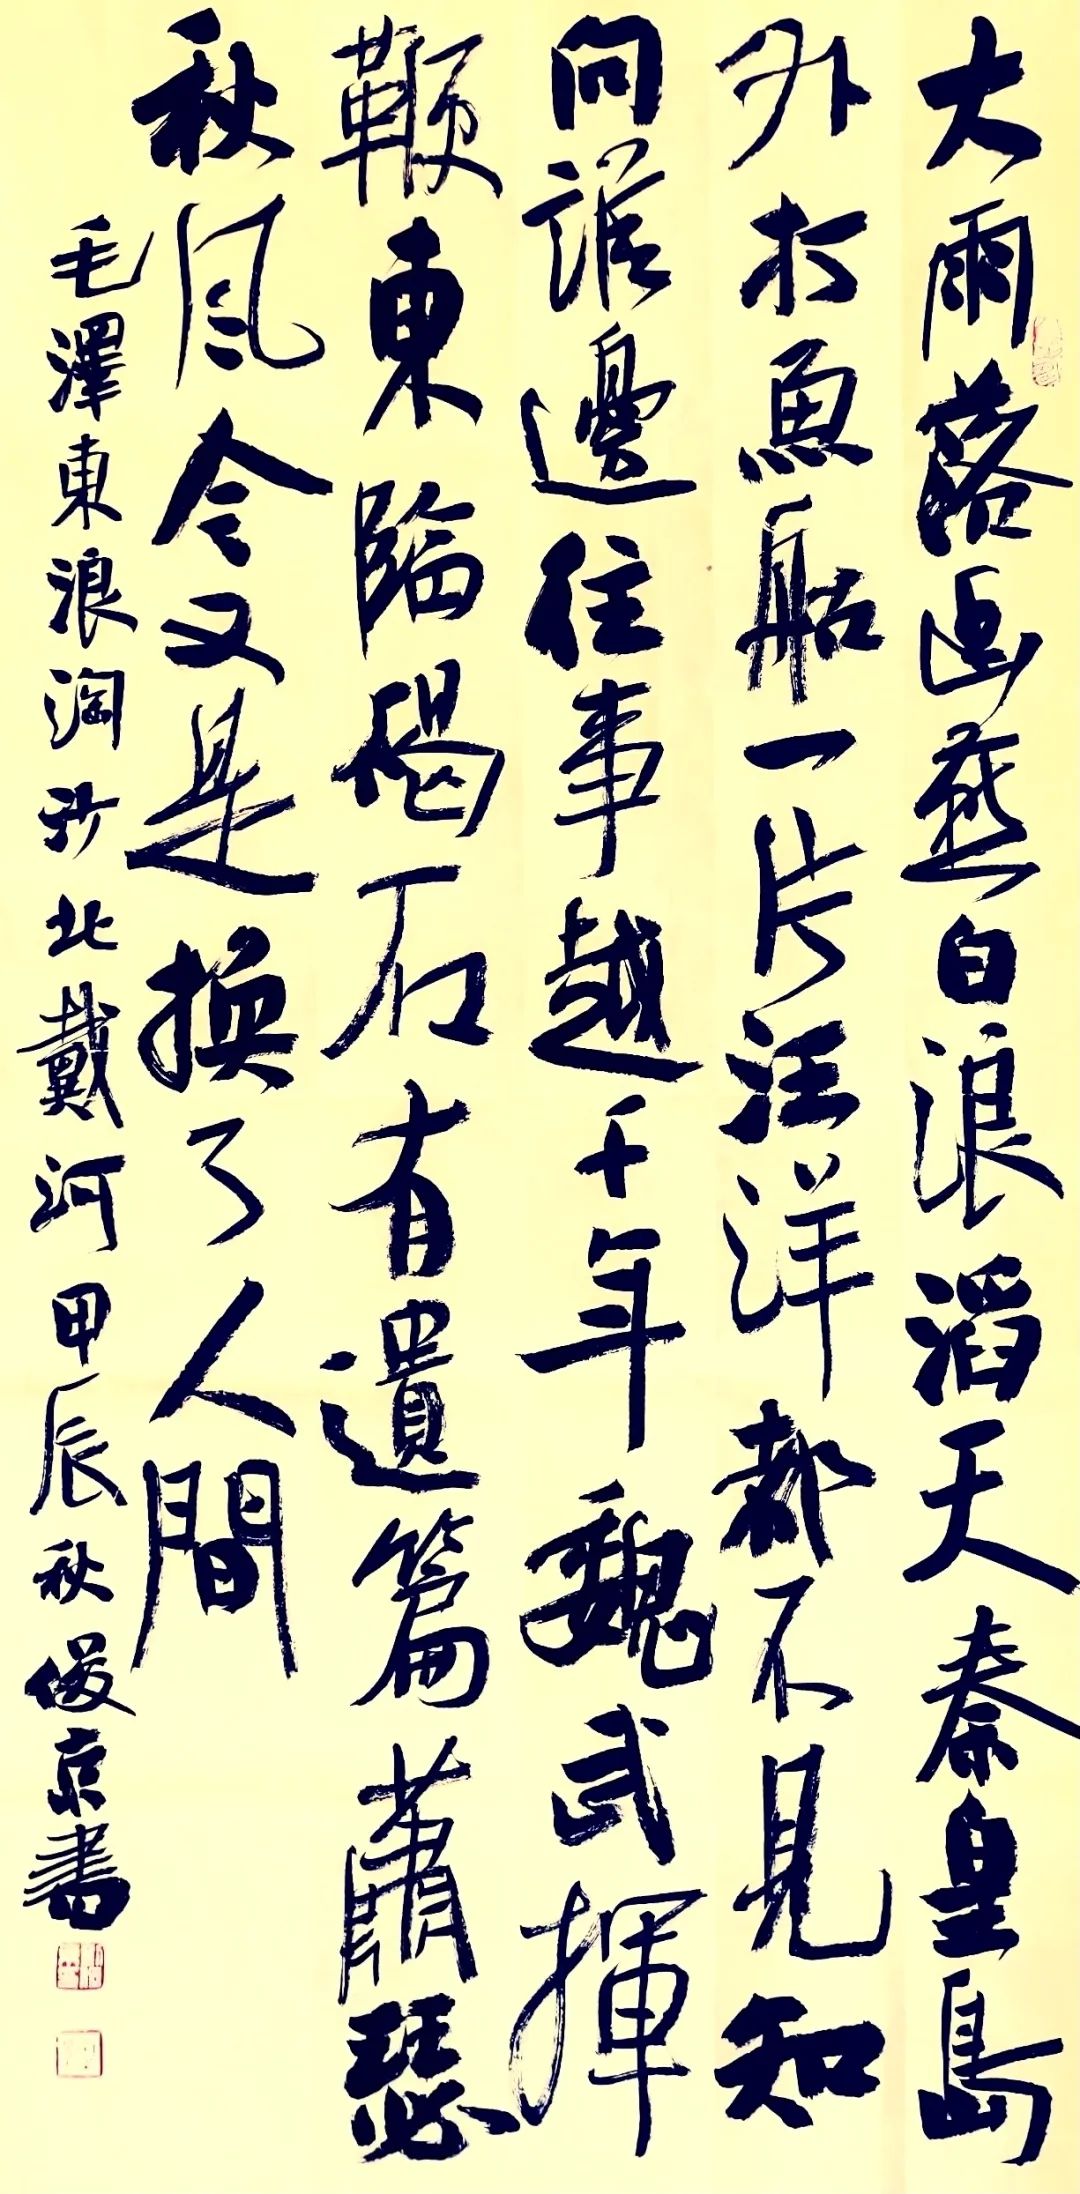 大雨落幽燕白浪滔天秦皇島
外打魚船一片汪洋都不見知
向誰邊往事越千年魏武揮
鞭東臨碣石有遺篇蕭瑟
秋風今又是換了人間
毛澤東浪淘沙北戴河甲辰秋俊京書